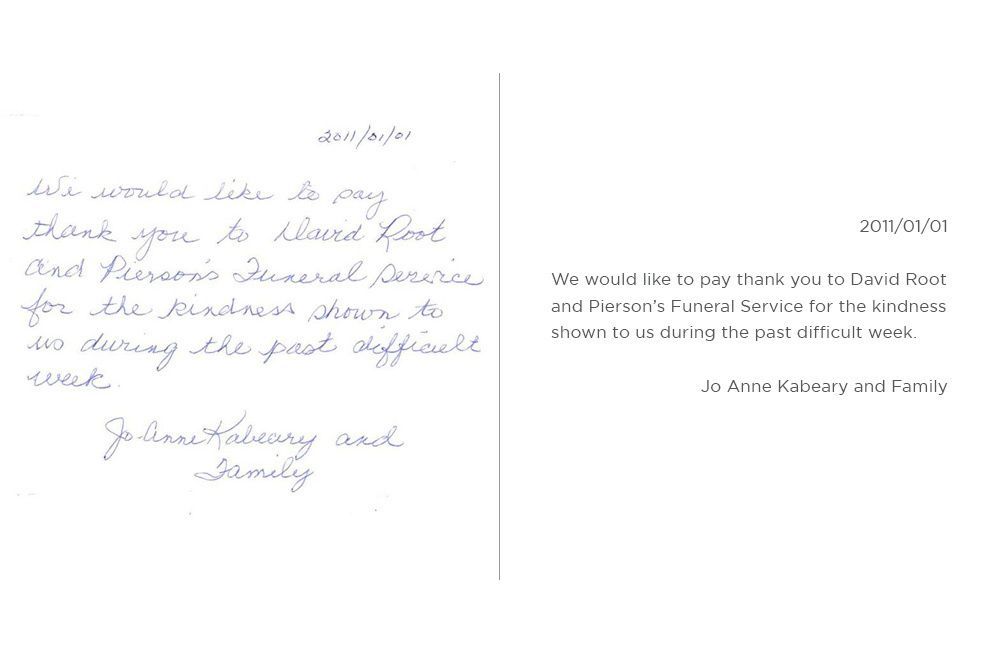 2011/01/01
We would like to pay
thank you to David Root
and Pierson's Funeral Service
for the kindness shown to
us during the past difficult
week.
Jo-Anne Kabeary and
Family
2011/01/01
We would like to pay thank you to David Root
and Pierson’s Funeral Service for the kindness
shown to us during the past difficult week.
Jo Anne Kabeary and Family